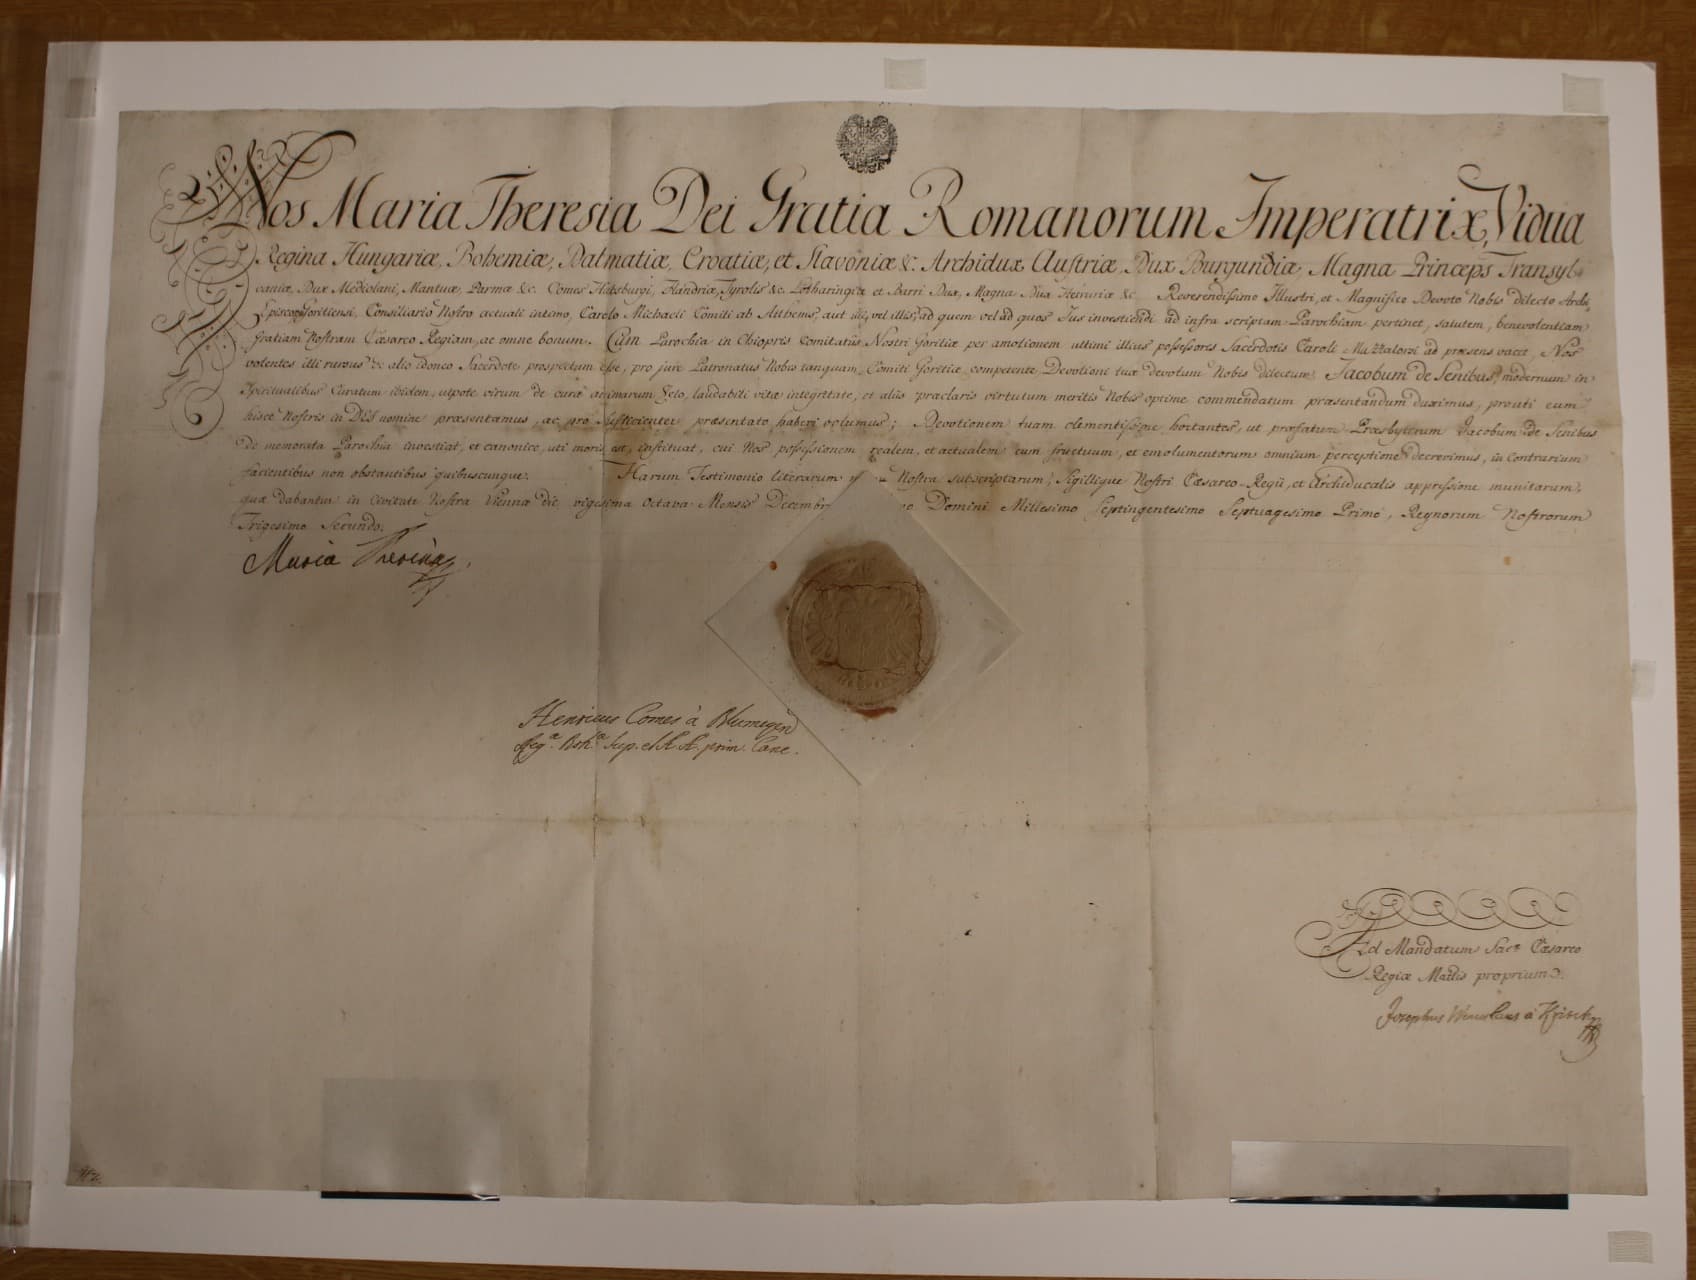 Nos Maria Theresia Dei Gratia Romanorum Imperatrix Vidua
Regina Hungariæ, Bohemiæ, Dalmatiæ, Croatiæ, et Slavoniæ &c. Archidux Austriæ, Dux Burgundiæ, Magna Princeps Transyl-
vaniæ, Dux Mediolani, Mantuæ, Parmæ &c. Comes Habsburgi, Flandriæ, Tyrolis &c. Lotharingiæ et Barri Dux, Magna Dux Hetruriæ &c. Reverendissimo Illustri, et Magnifico Devoto Nobis dilecto Archi
Episcopo Goritiensi, Consiliario Nostro actuali intimo, Carolo Michaeli Comiti ab Atthems, aut illi, vel illis, ad quem vel ad quos Jus investiendi ad infra scriptam Parochiam pertinet, salutem, benevolentiam
Gratiam Nostram Cæsareo Regiam, ac omne bonum. Cum Parochia in Chiopris Comitatûs Nostri Goritiæ per amotionem ultimi illius possessoris Sacerdotis Caroli ad præsens vacet, Nos
volentes illi rursus de alio idoneo Sacerdote prospectum esse, pro jure Patronatus Nobis tanquam Comiti Goritiæ competente Devotioni tuæ devotum Nobis dilectum Jacobum de Senibus, modernum in
Spiritualibus Curatum ibidem, utpote virum de curæ animarum Zelo, laudabili vitæ integritate, et aliis præclaris virtutum meritis Nobis optime commendatum præsentandum duximus, prouti eum
hisce Nostris in DEI nomine præsentamus, ac pro sufficienter præsentato haberi volumus; Devotionem tuam clementissime hortantes, ut præfatum Præsbyterum Jacobum de Senibus
de memorata Parochia investiat, et canonice, uti moris est, instituat, cui Nos possessionem realem, et actualem cum fructuum, et emolumentorum omnium perceptione decrevimus, in contrarium
facientibus non obstantibus quibuscunque. Harum Testimonio literarum Nostra subscriptarum, Sigillique Nostri Cæsareo-Regii, et Archiducalis appressione munitarum,
quæ dabantur in Civitate Nostra Viennæ die vigesima octava Mensis Decembr Domini Millesimo Septingentesimo Septuagesimo Primo, Regnorum Nostrorum
Trigesimo Secundo.
Maria Theresia
Henricus Comes à Blumegen
Reg.æ Boh.æ Sup. et A. A. prim. Canc.
Ad Mandatum Sac.æ Cæsareo
Regiæ Mattis proprium.
Josephus Wenceslaus à